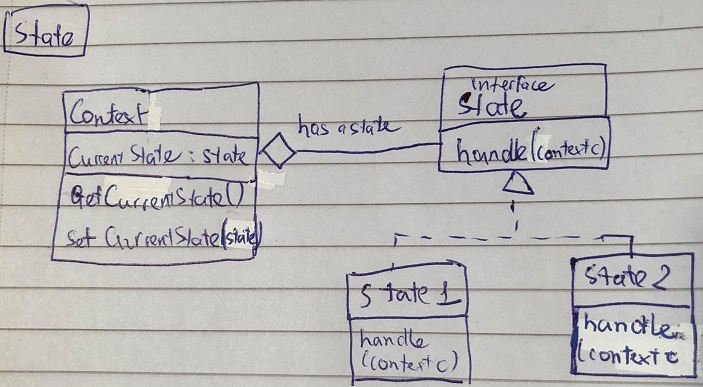 State
Context
CurrentState : state
GetCurrentState()
Set CurrentState(state)
has a state
interface
State
handle(context c)
State 1
handle
(context c)
State 2
handle
(context c